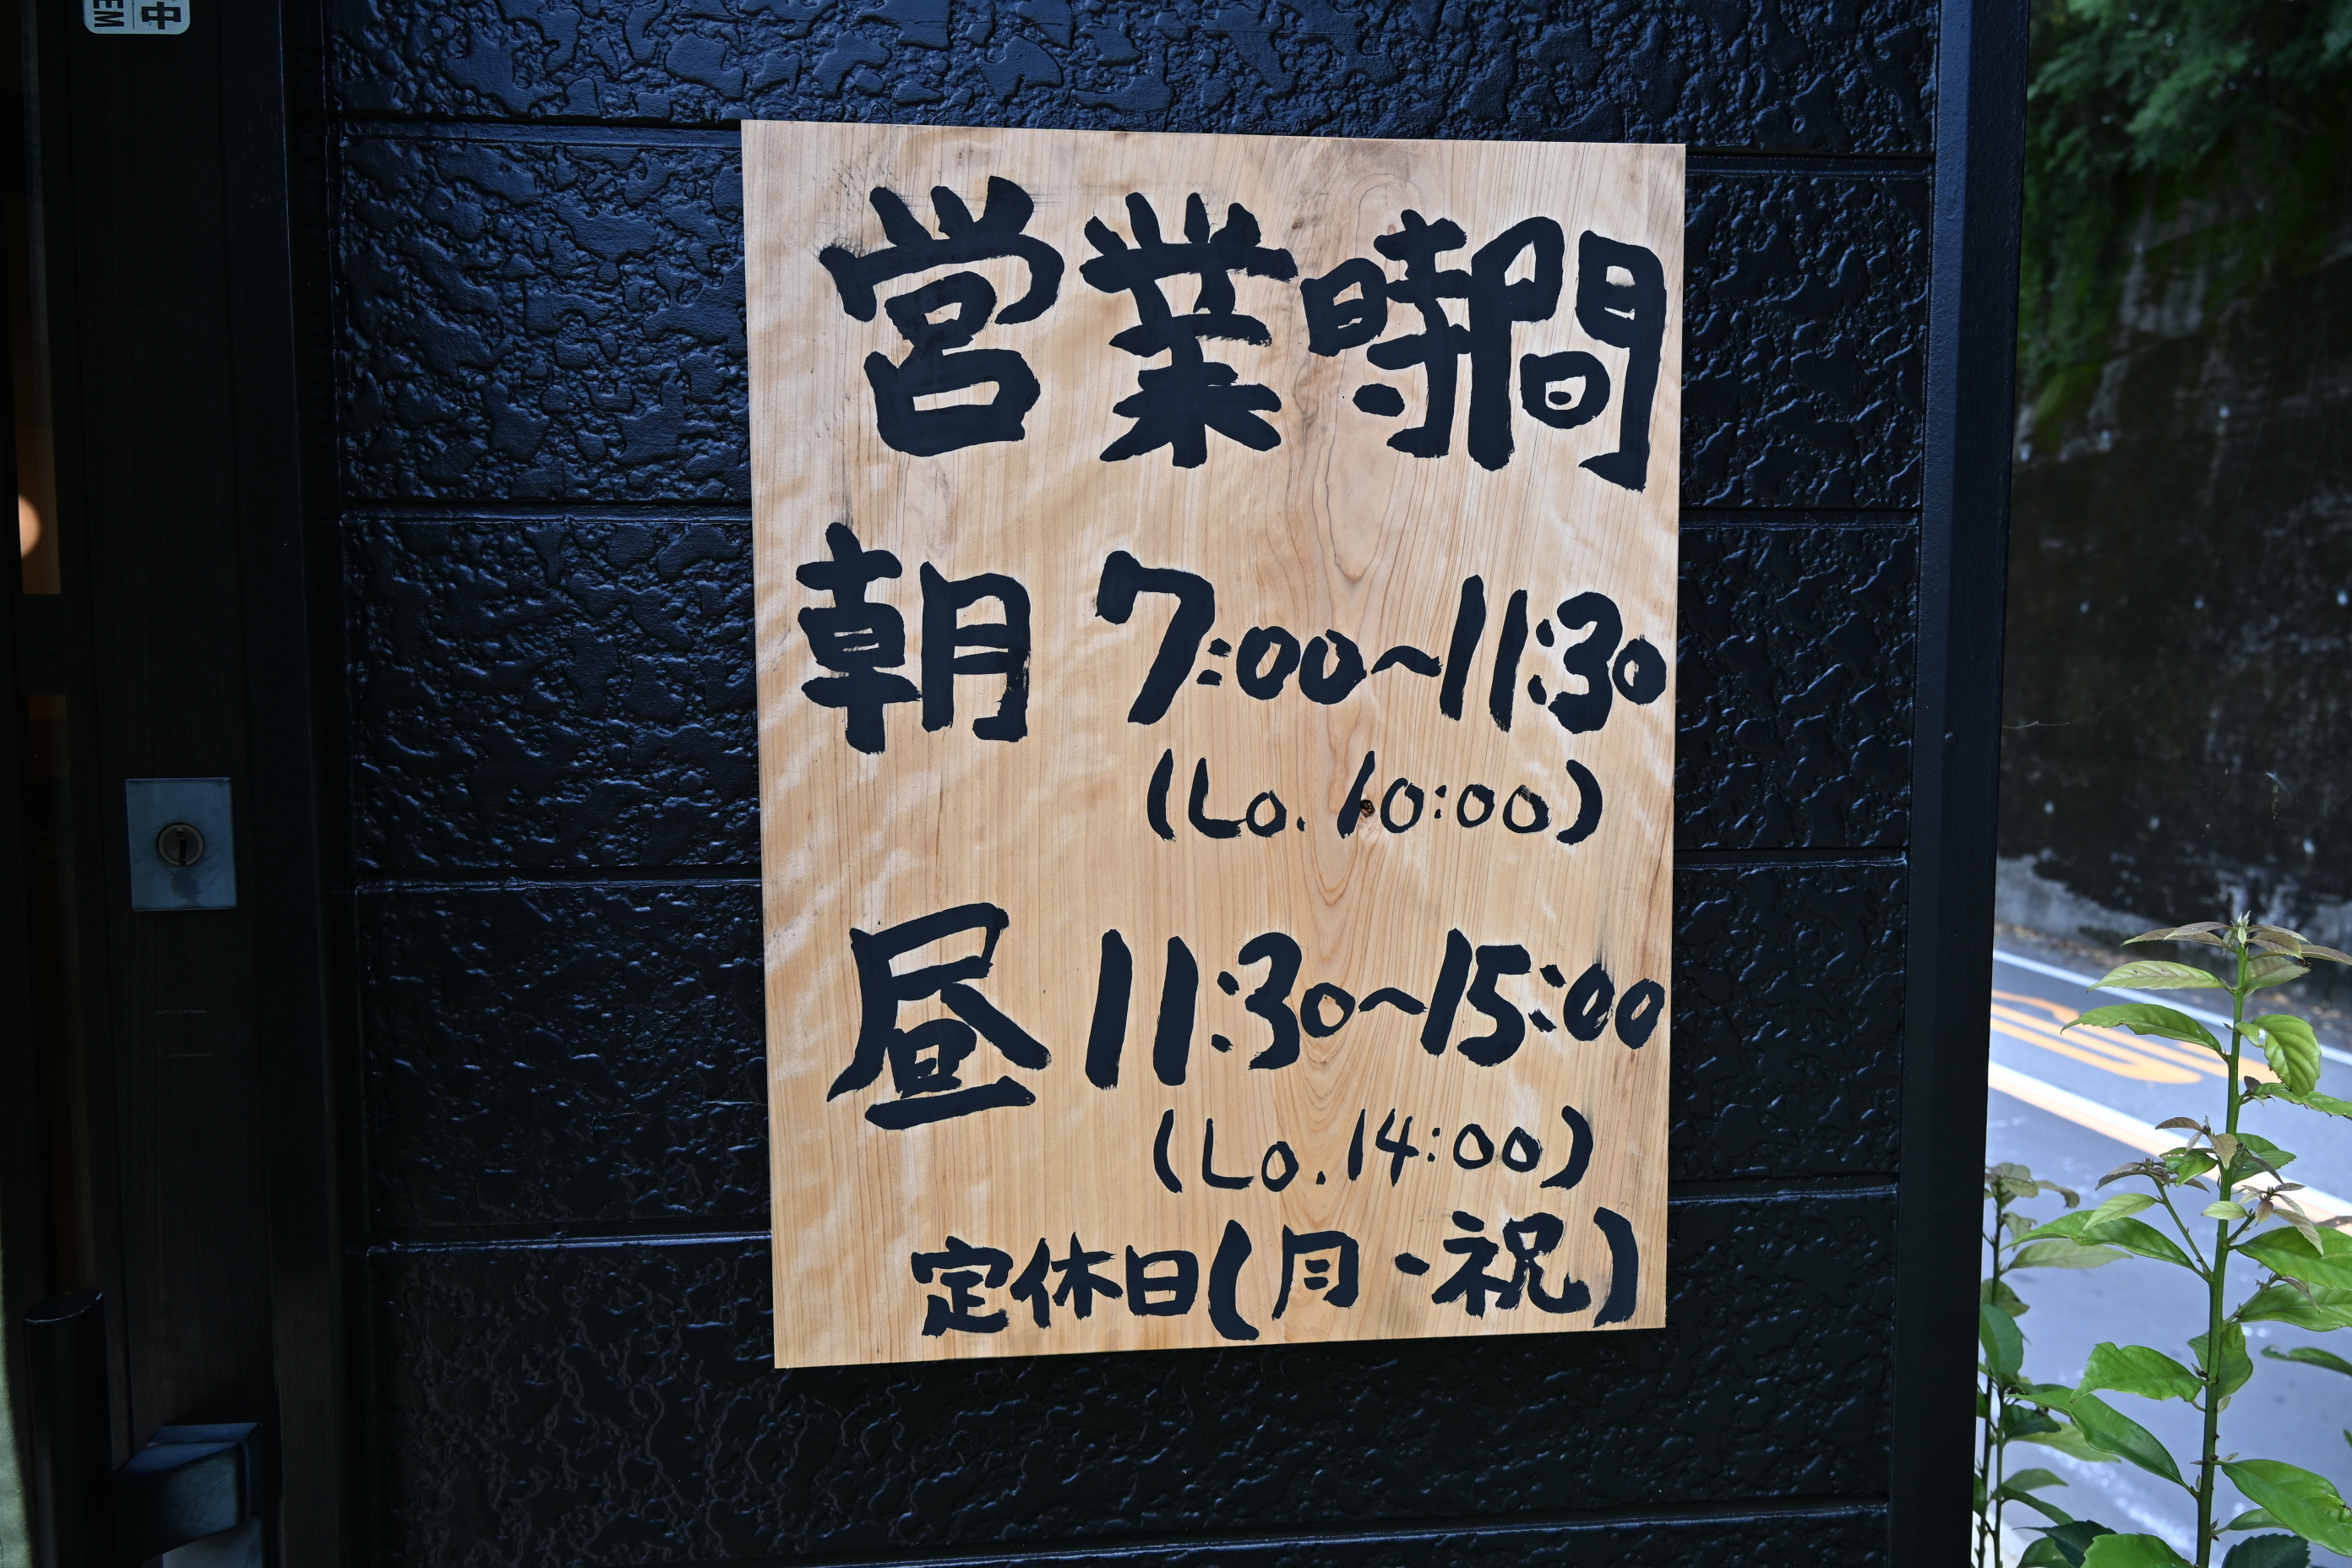 営業時間
朝 7:00~11:30
(Lo. 10:00)
昼 11:30~15:00
(Lo. 14:00)
定休日(月・祝)